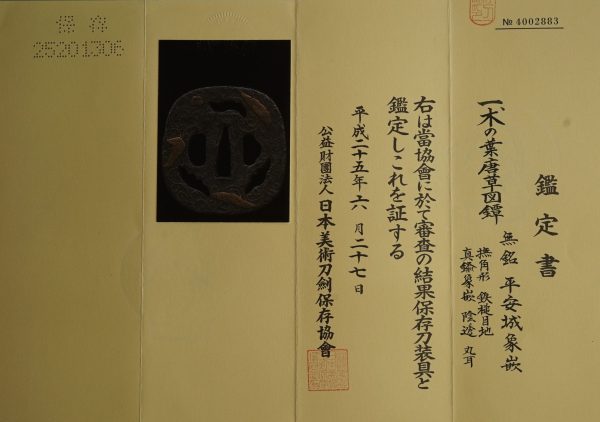 № 4002883
鑑定書
一、木の葉唐草図鐔
無銘 平安城象嵌
撫角形 鉄槌目地
真鍮象嵌 陰透 丸耳
右は當協會に於て審査の結果保存刀装具と
鑑定しこれを証する
平成二十五年六月二十七日
公益財團法人 日本美術刀劍保存協會
保存
25201306